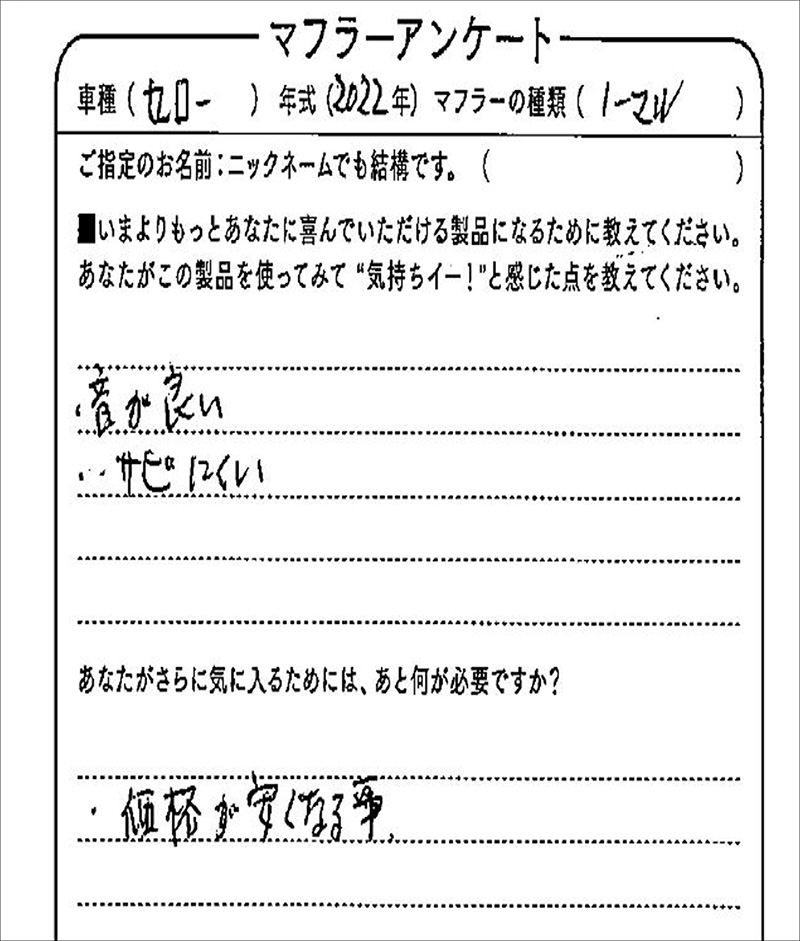 マフラーアンケート
車種(セロー)年式(2022年)マフラーの種類(ノーマル)
ご指定のお名前:ニックネームでも結構です。( )
■いまよりもっとあなたに喜んでいただける製品になるために教えてください。
あなたがこの製品を使ってみて“気持ちイー!”と感じた点を教えてください。
・音が良い
・サビにくい
あなたがさらに気に入るためには、あと何が必要ですか?
・価格が安くなる事、